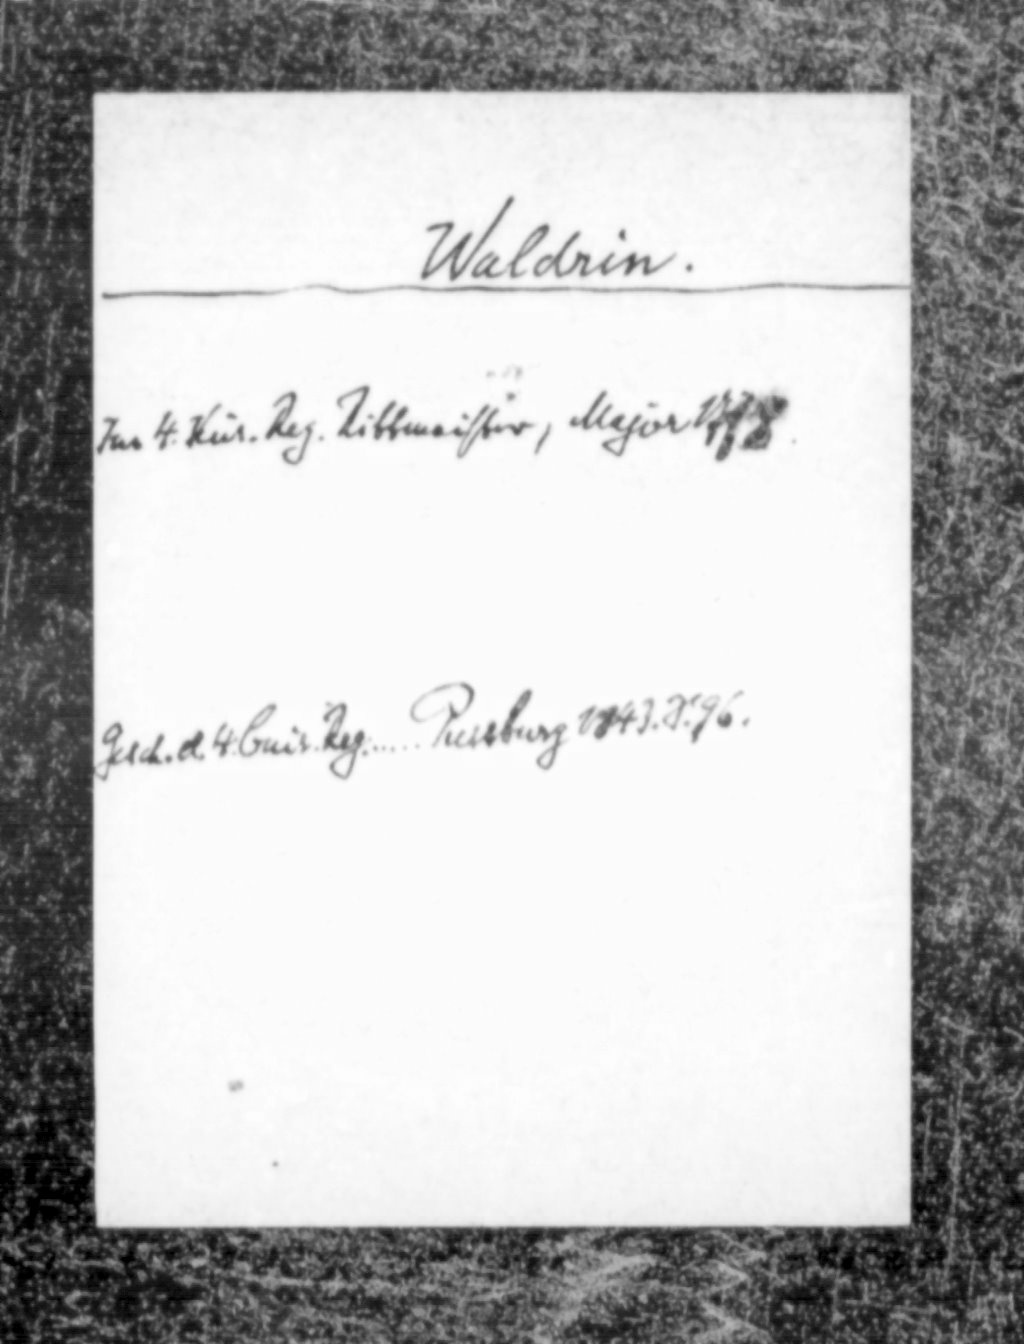 Waldrin.
Im 4. Kür. Reg. Rittmeister, Major
Gesch. d. 4. Cuir. Reg. .... Pressburg 1843. S. 96.